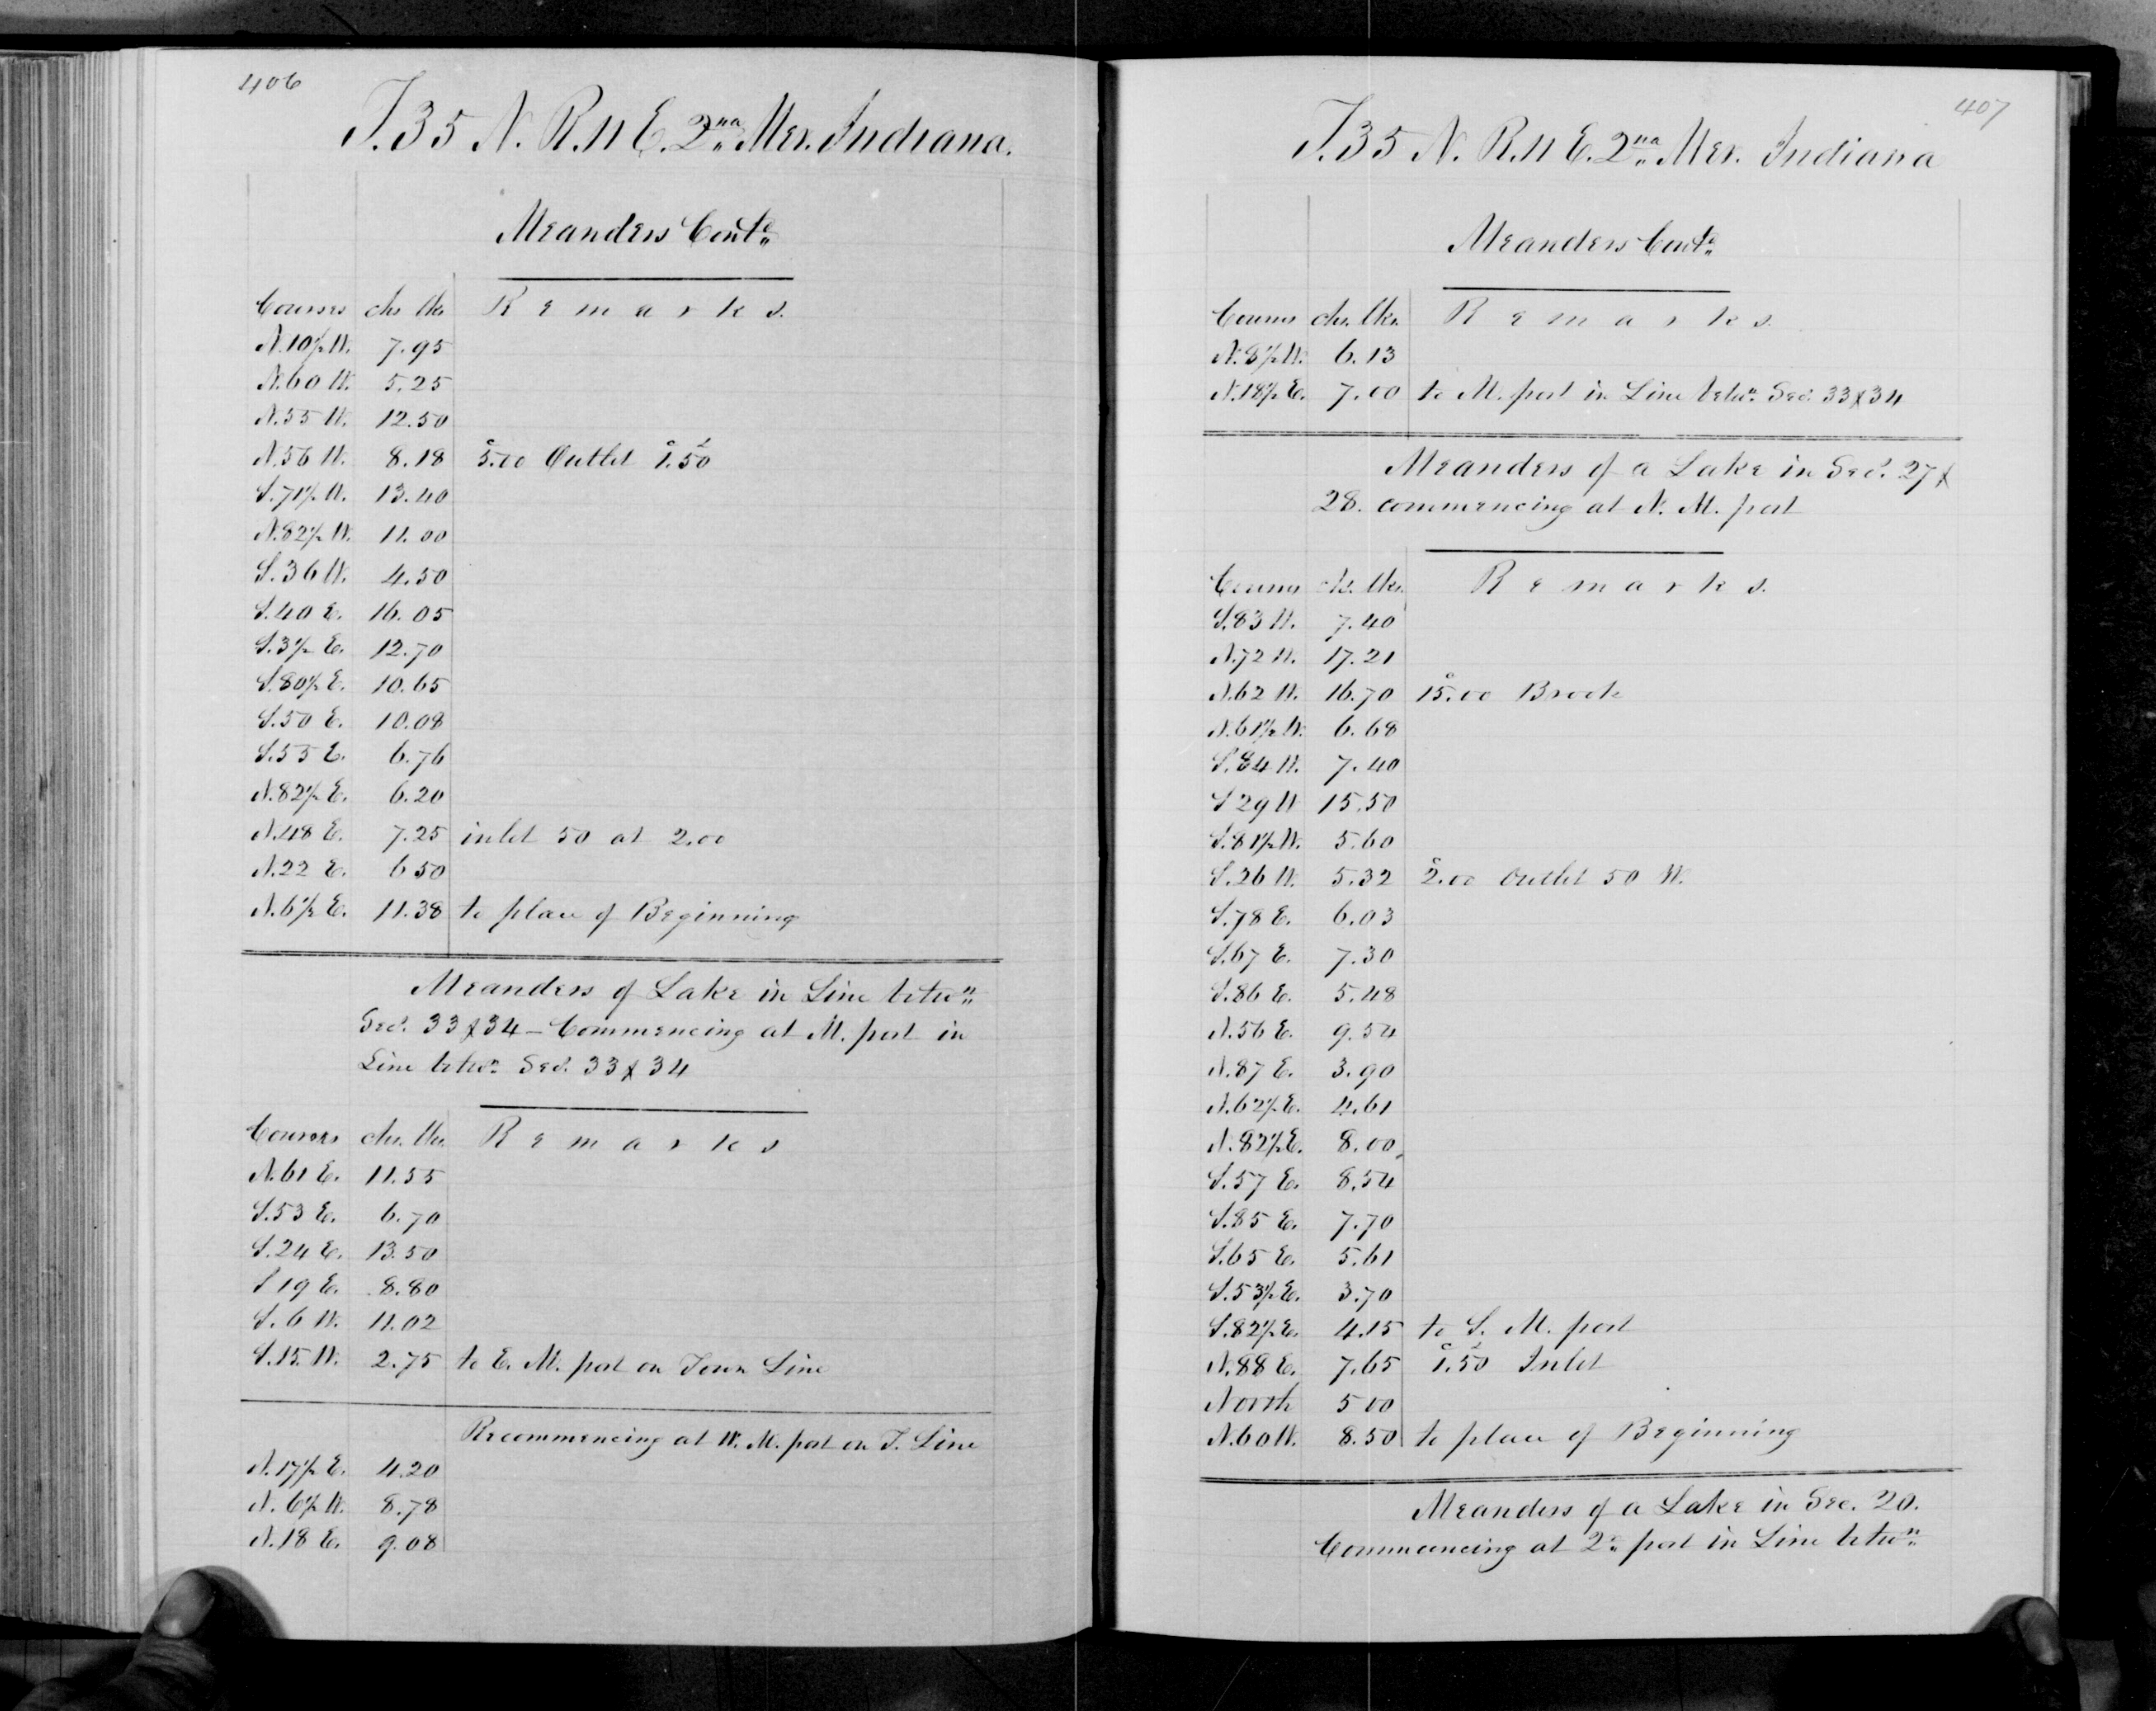 406
T. 35 N. R. 11 E. 2nd Mer. Indiana.
Meanders Contd
Courses chs lks Remarks.
N. 10½ W. 7.95
N. 60 W. 5.25
N. 55 W. 12.50
N. 56 W. 8.18 5.00 Outlet 1.50
S. 71½ W. 13.40
N. 82½ W. 11.00
S. 36 W. 4.50
S. 40 E. 16.05
S. 3½ E. 12.70
S. 80½ E. 10.65
S. 50 E. 10.08
S. 55 E. 6.76
N. 82½ E. 6.20
N. 48 E. 7.25 inlet 50 at 2.00
N. 22 E. 6 50
N. 6½ E. 11.38 to place of Beginning
Meanders of Lake in Line betwn
Secs. 33 & 34 – Commencing at M. post in
Line betwn Secs. 33 & 34
Courses chs. lks. Remarks
N. 61 E. 11.55
S. 53 E. 6.70
S. 24 E. 13.50
S 19 E. 8.80
S. 6 W. 11.02
S. 15. W. 2.75 to E. M. post on Town Line
Recommencing at W. M. post on T. Line
N. 17½ E. 4.20
N. 6½ W. 8.78
N. 18 E. 9.08
407
T. 35 N. R. 11 E. 2nd Mer. Indiana
Meanders Contd
Courses chs. lks. Remarks.
N. 8½ W. 6.13
N. 18½ E. 7.00 to M. post in Line betwn Secs. 33 & 34
Meanders of a Lake in Secs. 27 &
28. commencing at N. M. post
Courses chs. lks. Remarks.
S. 83 W. 7.40
N. 72 W. 17.21
N. 62 W. 16.70 15.00 Brook
N. 61½ W. 6.68
S. 84 W. 7.40
S 29 W 15.50
S. 81½ W. 5.60
S. 26 W. 5.32 2.00 Outlet 50 W.
S. 78 E. 6.03
S. 67 E. 7.30
S. 86 E. 5.48
N. 56 E. 9.54
N. 87 E. 3.90
N. 62½ E. 4.61
N. 82½ E. 8.00
S. 57 E. 8.54
S. 85 E. 7.70
S. 65 E. 5.61
S. 53½ E. 3.70
S. 82½ E. 4.15 to S. M. post
N. 88 E. 7.65 1.50 Inlet
North 5 00
N. 60 W. 8.50 to place of Beginning
Meanders of a Lake in Sec. 20.
Commencing at 2d post in Line betwn